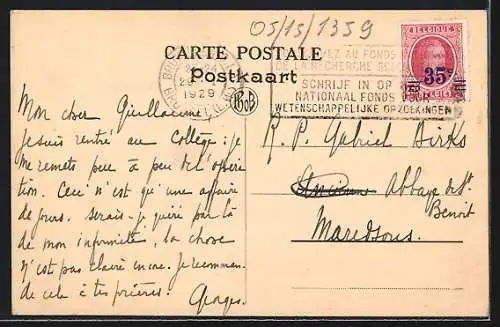 05/15/1359
CARTE POSTALE
Postkaart
1929
BELGIQUE
35c
BELGIË
AU FONDS
DE LA RECHERCHE
SCHRIJF IN OP
NATIONAAL FONDS VOOR
WETENSCHAPPELIJKE OPZOEKINGEN
Mon cher Guillaume,
Je suis rentré au Collège : je
me remets peu à peu de l'opéra-
tion. Ceci n'est qu'une affaire
de jours. Serais-je guéri par là
de mon infirmité, la chose
n'est pas claire encore. Je recomman-
de cela à tes prières. Georges.
R. P. Gabriel Birks
Abbaye de St.
Benoit
Maredsous.